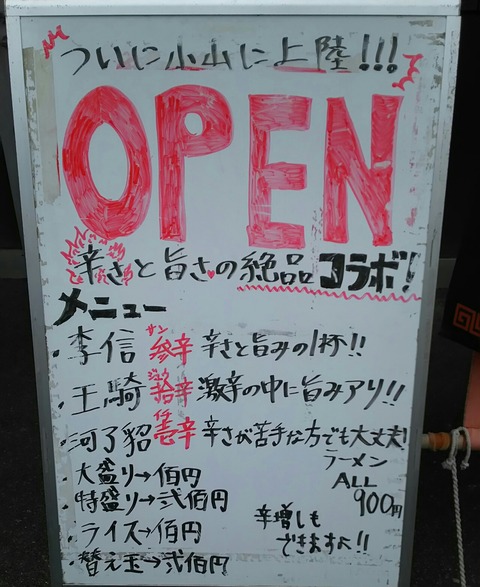 ついに小山に上陸!!!
OPEN
辛さと旨さの絶品コラボ!
メニュー
・李信 参辛 サン 辛さと旨みの1杯!!
・王騎 拾辛 ジュウ 激辛の中に旨みアリ!!
・河了貂 壱辛 イチ 辛さが苦手な方でも大丈夫!
・大盛り→佰円
・特盛り→弐佰円
・ライス→佰円
・替え玉→弐佰円
ラーメン
ALL
900円
辛増しも
できます!!